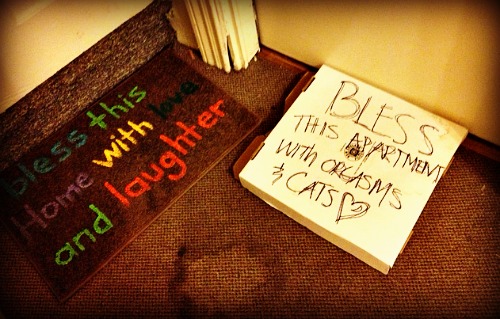 bless this
Home with love
and laughter
BLESS
THIS APARTMENT
WITH ORGASMS
& CATS